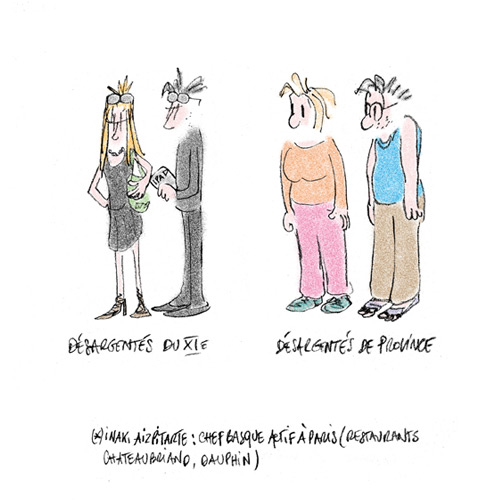 IPAD
DÉSARGENTÉS DU XIe
DÉSARGENTÉS DE PROVINCE
(*) INAKI AIZPITARTE : CHEF BASQUE ACTIF À PARIS (RESTAURANTS
CHATEAUBRIAND, DAUPHIN)